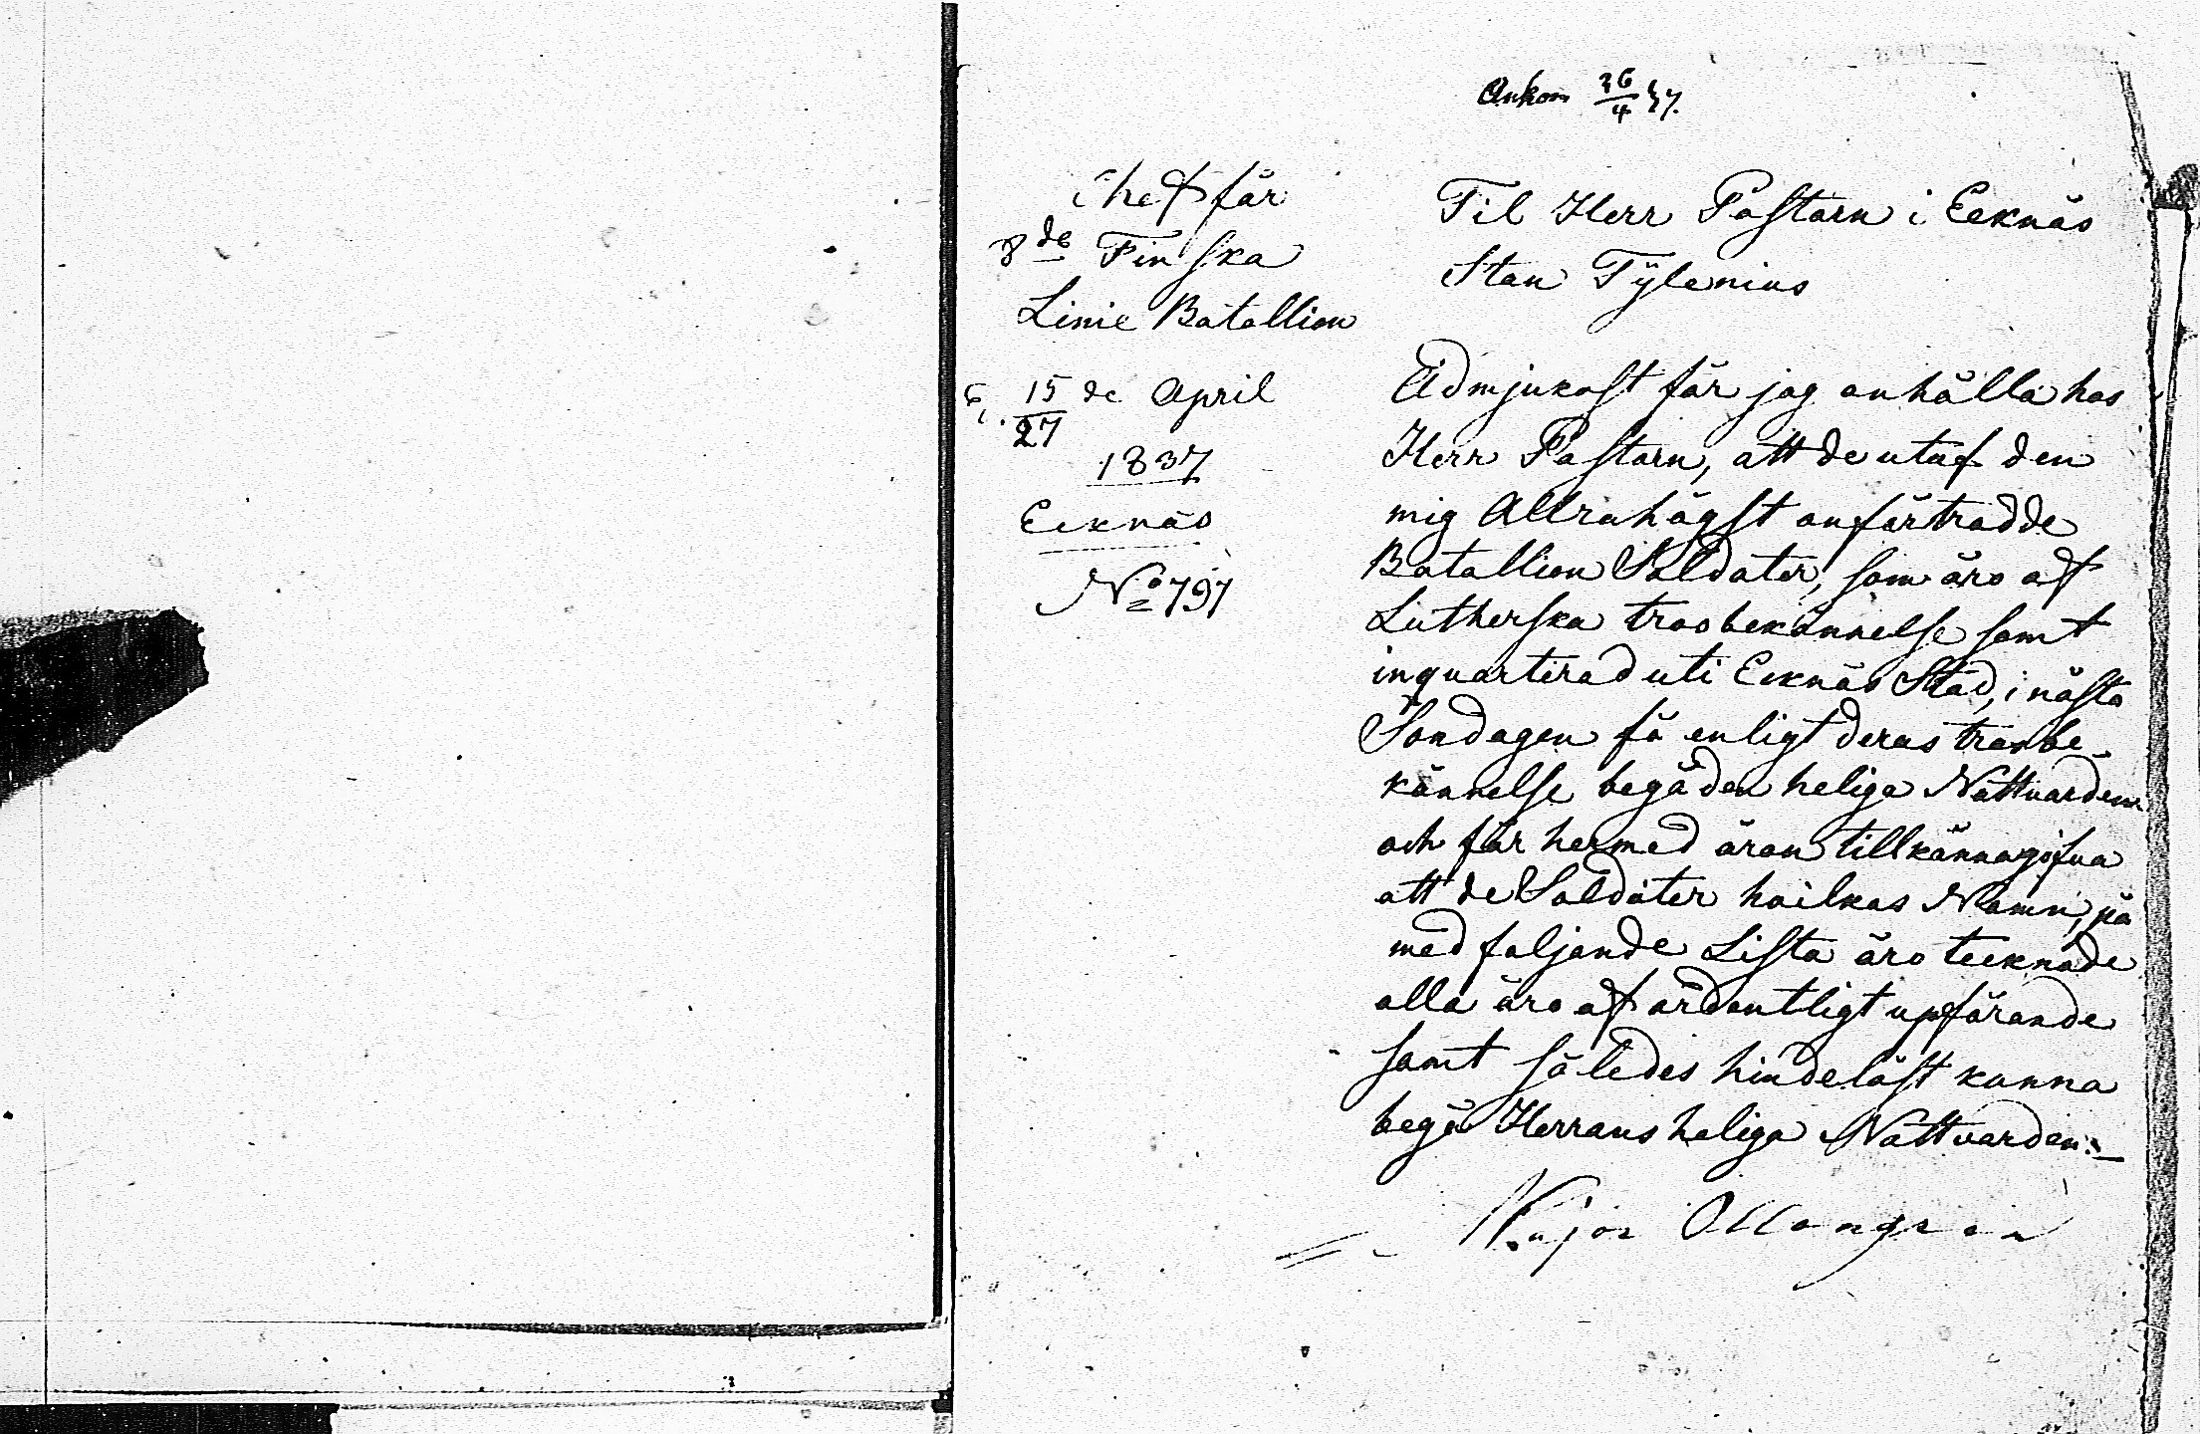 Ankom 26/4 37.
Chef för
8de Finska
Linie Batallion
15/27 de April
1837
Eeknäs
No 797
Til Herr Pastorn i Eeknäs
Stan Tÿlenius
Ödmjukast får jag anhålla hos
Herr Pastorn, att de utaf den
mig Allrahögst anförtrodde
Batallion Soldater, som äro af
Lutherska trosbekännelse samt
inquartirad uti Eeknäs Stad, i nästa
Söndagen få enligt deras trosbe-
kännelse begå den heliga Nattvarden
och får hermed äran tillkännagifva
att de Soldater hvilkas Namn, på
medfoljande Lista äro teeknade
alla äro af ordentligt upförande
samt således hindelöst kunna
begå Herrans heliga Nattvarden.
Major